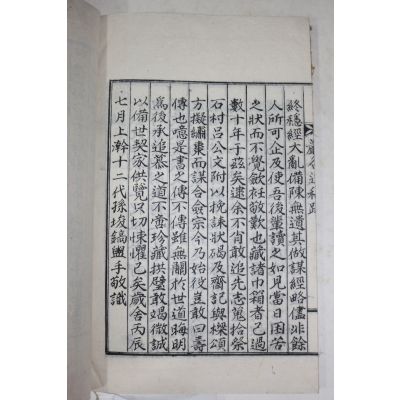 終穩經大亂備陳無遺其做謀經略儘非餘
人所可企及使吾後蠻讀之如見當日困苦
之狀而不覺歛衽敬歎也藏諸巾箱者己過
數十年于玆矣逮余不肖敢追先志蒐拾祭
石村呂公文附以挽誄狀碣及齋記與樑頌
方擬繡棗而謀合僉宗今乃始役豈敢曰壽
傳也噫是書之傳不傳雖無關於世道晦明
爲後承追慕之道不啻珍藏拱璧敢竭微誠
以備世契家供覽只切悚懼己矣歲舍丙辰
七月上澣十二代孫埈鎬盥手敬識